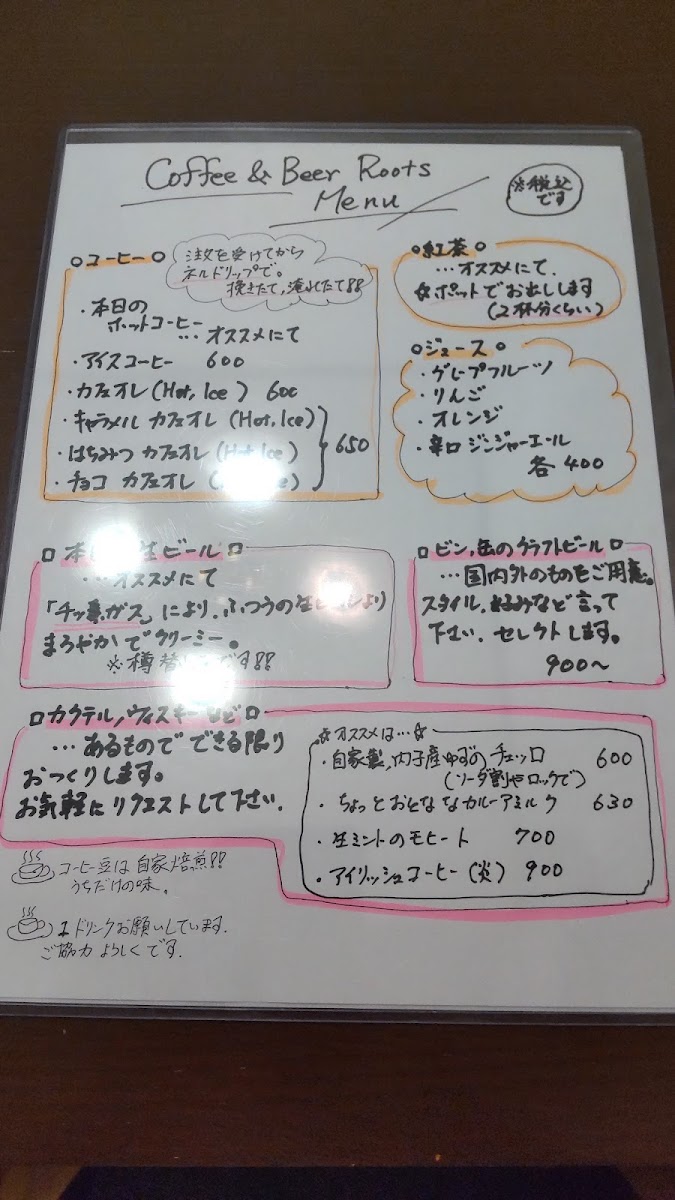 Coffee & Beer Roots
Menu
※税込
です
コーヒー
注文を受けてから
ネルドリップで。
挽きたて,淹れたて!!
・本日の
ホットコーヒー
…オススメにて
・アイスコーヒー 600
・カフェオレ(Hot, Ice) 600
・キャラメル カフェオレ (Hot, Ice)
・はちみつ カフェオレ (Hot, Ice)
・チョコ カフェオレ
650
紅茶
…オススメにて.
☆ポットでお出しします
(2杯分くらい)
ジュース
・グレープフルーツ
・りんご
・オレンジ
・辛口ジンジャーエール
各400
生ビール
…オススメにて
「チッ素ガス」により,ふつうの生ビールより
まろやかでクリーミー。
※樽 です!!
ビン,缶のクラフトビール
…国内外のものをご用意。
スタイル,好みなど言って
下さい.セレクトします。
900〜
カクテル,ウィスキーなど
…あるもので できる限り
おつくりします。
お気軽にリクエストして下さい.
☆オススメは…☆
・自家製,内子産ゆずのチェッロ 600
(ソーダ割やロックで)
・ちょっとおとななカルーアミルク 630
・生ミントのモヒート 700
・アイリッシュコーヒー(炎) 900
コーヒー豆は自家焙煎!!
うちだけの味。
1ドリンクお願いしています.
ご協力よろしくです.